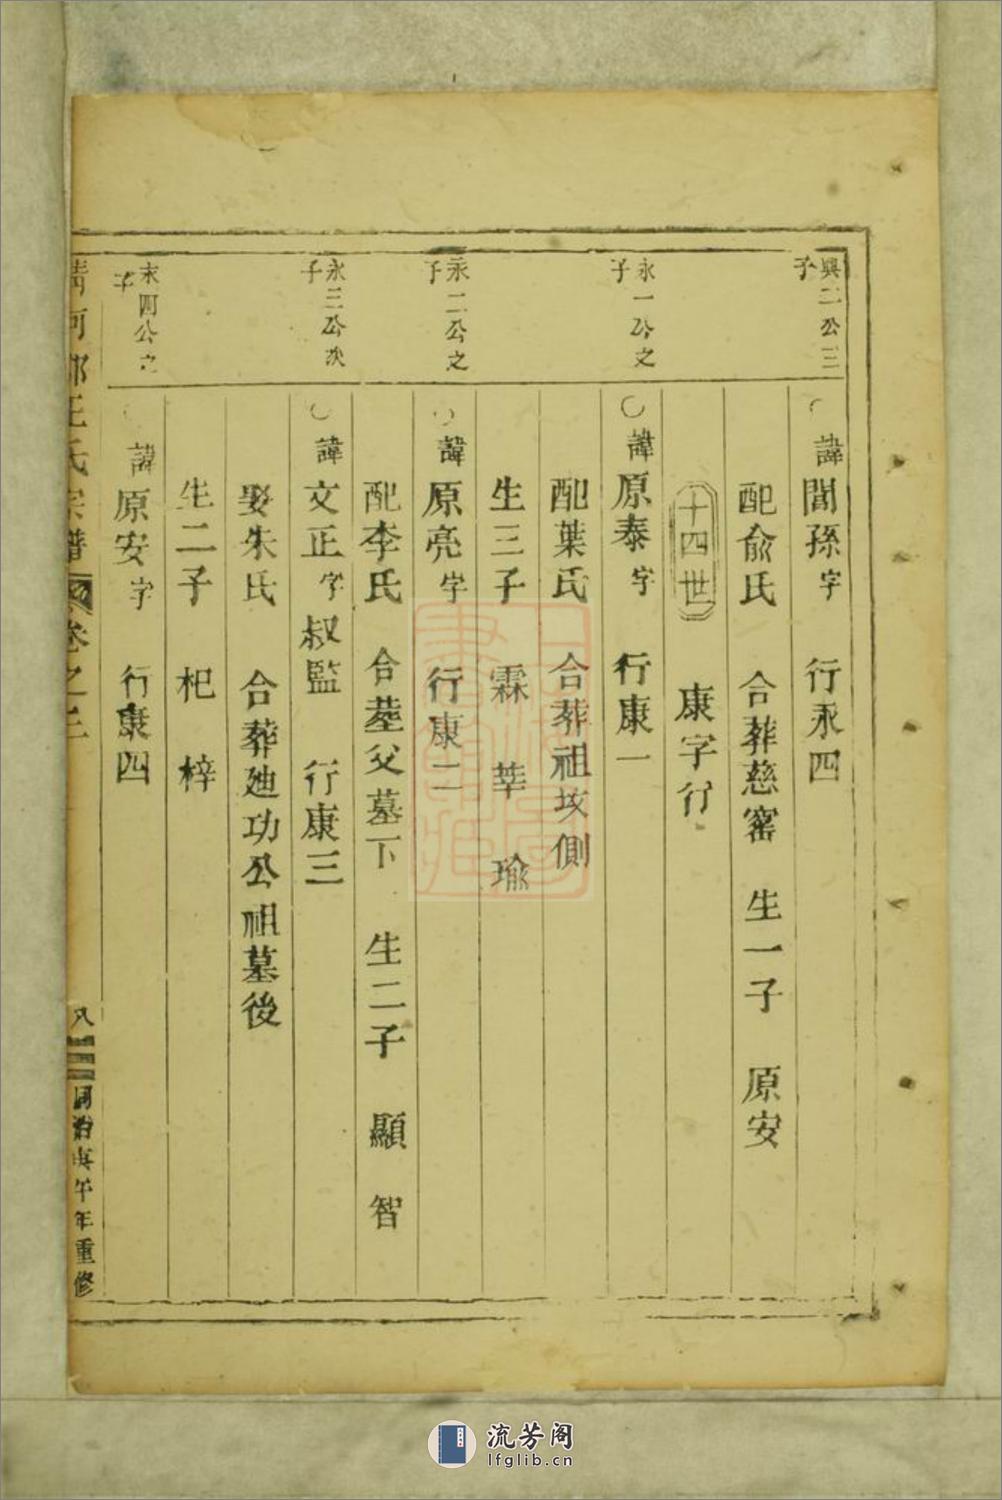 興二公三
子
諱閏孫字 行永四
配俞氏 合葬慈窰 生一子 原安
十四世 康字行
永一公之
子
諱原泰字 行康一
配葉氏 合葬祖坟側
生三子 霖 莘 瑜
永二公之
子
諱原亮字 行康二
配李氏 合葬父墓下 生二子 顯 智
永三公次
子
諱文正字叔監 行康三
娶朱氏 合葬廸功公祖墓後
生二子 杞 梓
永四公之
子
諱原安字 行康四
清河郡王氏宗譜 卷之二 八 同治庚午年重修
流芳阁
lfglib.cn